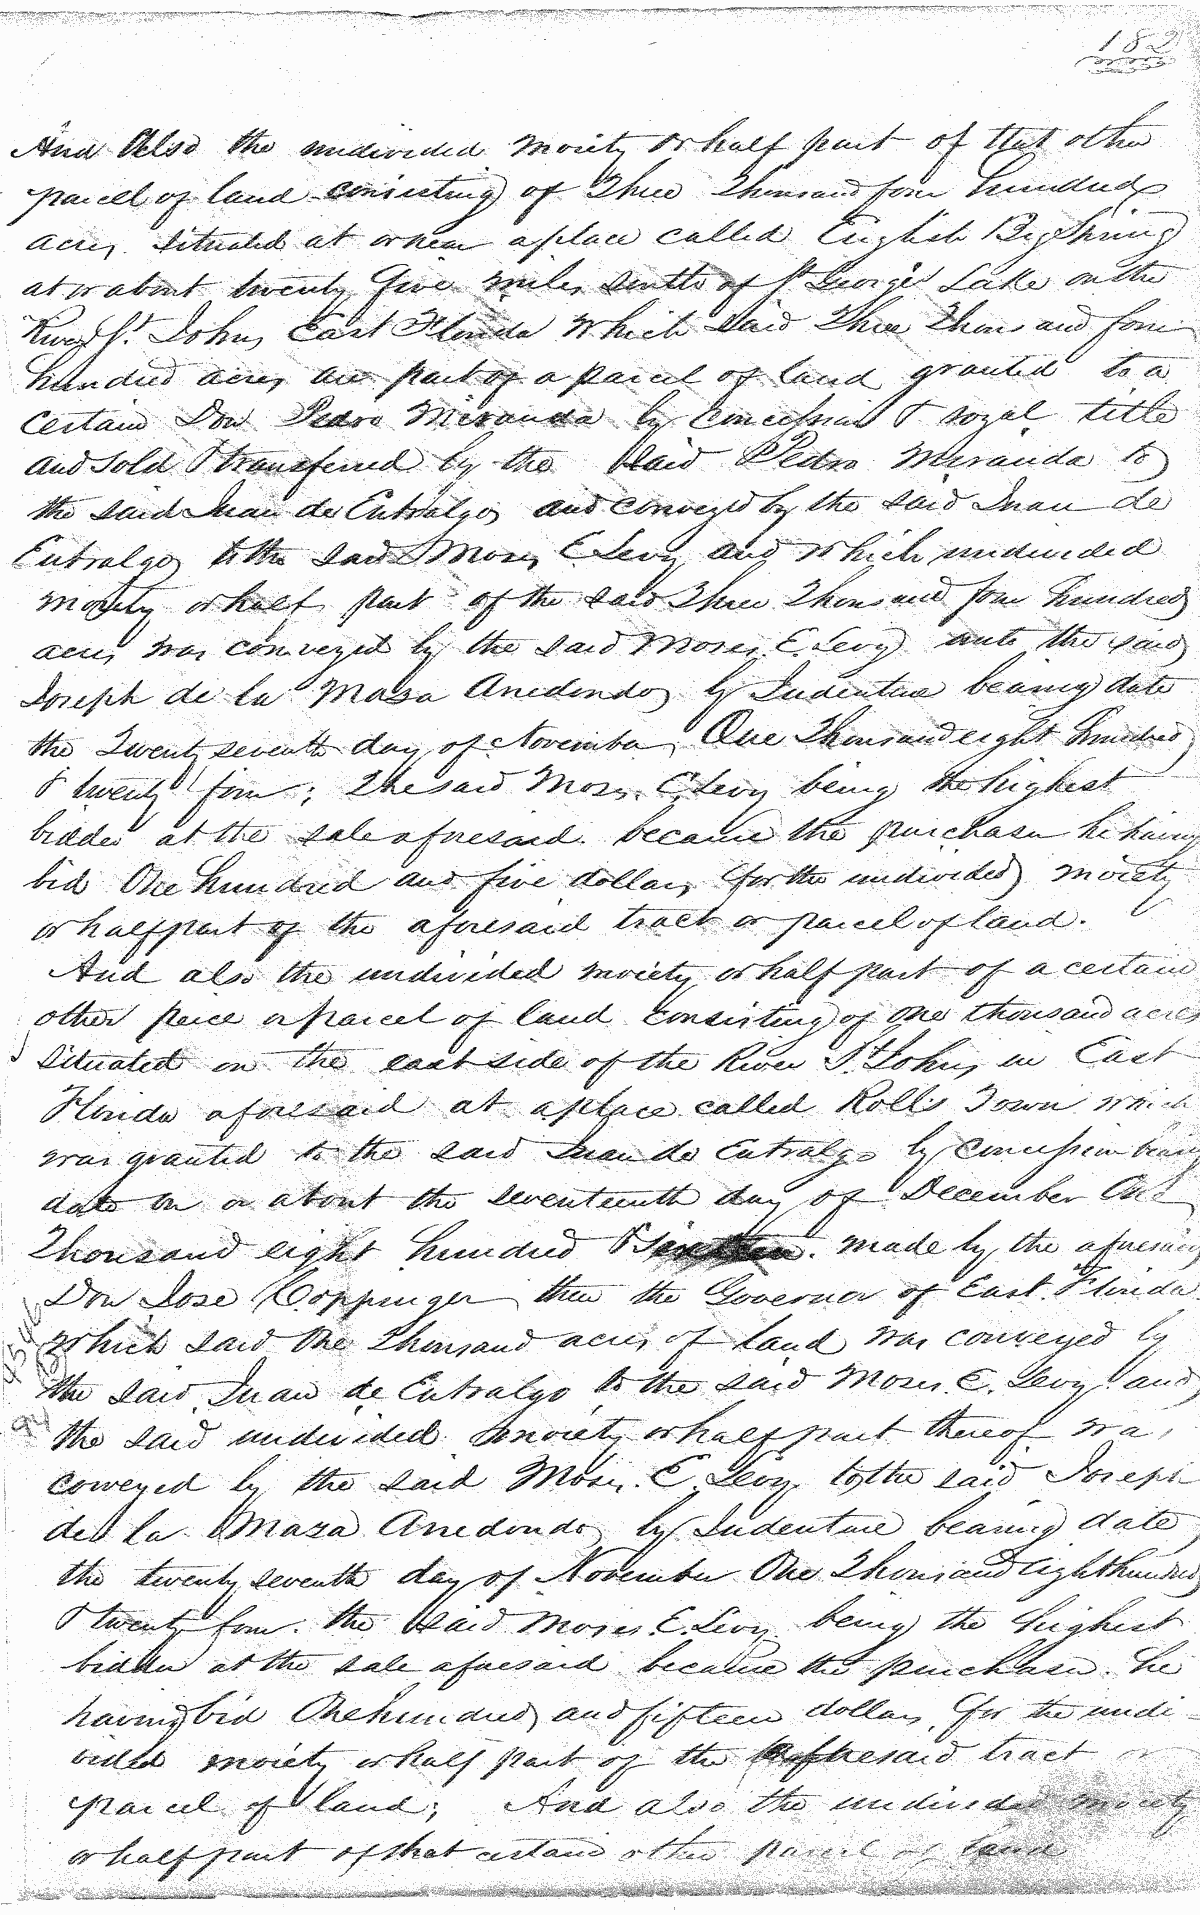 182
And Also the undivided moiety or half part of that other
parcel of land consisting of Three Thousand four hundred
acres situated at or near a place called English Big Spring
at or about twenty five miles south of St Georges Lake on the
River St. Johns East Florida which said Three Thousand four
hundred acres are part of a parcel of land granted to a
certain Don Pedro Miranda by concession & royal title
and sold & transferred by the said Pedro Miranda to
the said Juan de Entralgo and conveyed by the said Juan de
Entralgo to the said Moses E Levy and which undivided
moiety or half part of the said Three Thousand four hundred
acres was conveyed by the said Moses E. Levy unto the said
Joseph de la Maza Arredondo by Indenture bearing date
the Twenty seventh day of November, One Thousand eight hundred
& twenty four; The said Moses E. Levy being the highest
bidder at the sale aforesaid became the purchaser he having
bid One hundred and five dollars for the undivided moiety
or half part of the aforesaid tract or parcel of land.
And also the undivided moiety or half part of a certain
other peice or parcel of land consisting of One thousand acres
situated on the east side of the River St Johns in East
Florida aforesaid at a place called Rolls Town which
was granted to the said Juan de Entralgo by concession bearing
date on or about the seventeenth day of December One
Thousand eight hundred & sixteen. made by the aforesaid
Don Jose Coppinger then the Governor of East Florida
which said One Thousand acres of land was conveyed by
the said Juan de Entralgo to the said Moses E. Levy and
the said undivided moiety or half part thereof was
coveyed by the said Moses E. Levy to the said Joseph
de la Maza Arredondo by Indenture bearing date
the twenty seventh day of November One Thousand Eight hundred
& twenty four. the said Moses E. Levy being the highest
bidder at the sale aforesaid became the purchaser. he
having bid One hundred and fifteen dollars, for the undi-
vided moiety or half part of the aforesaid tract or
parcel of land; And also the undivided moiety
or half part of that certain other parcel of land